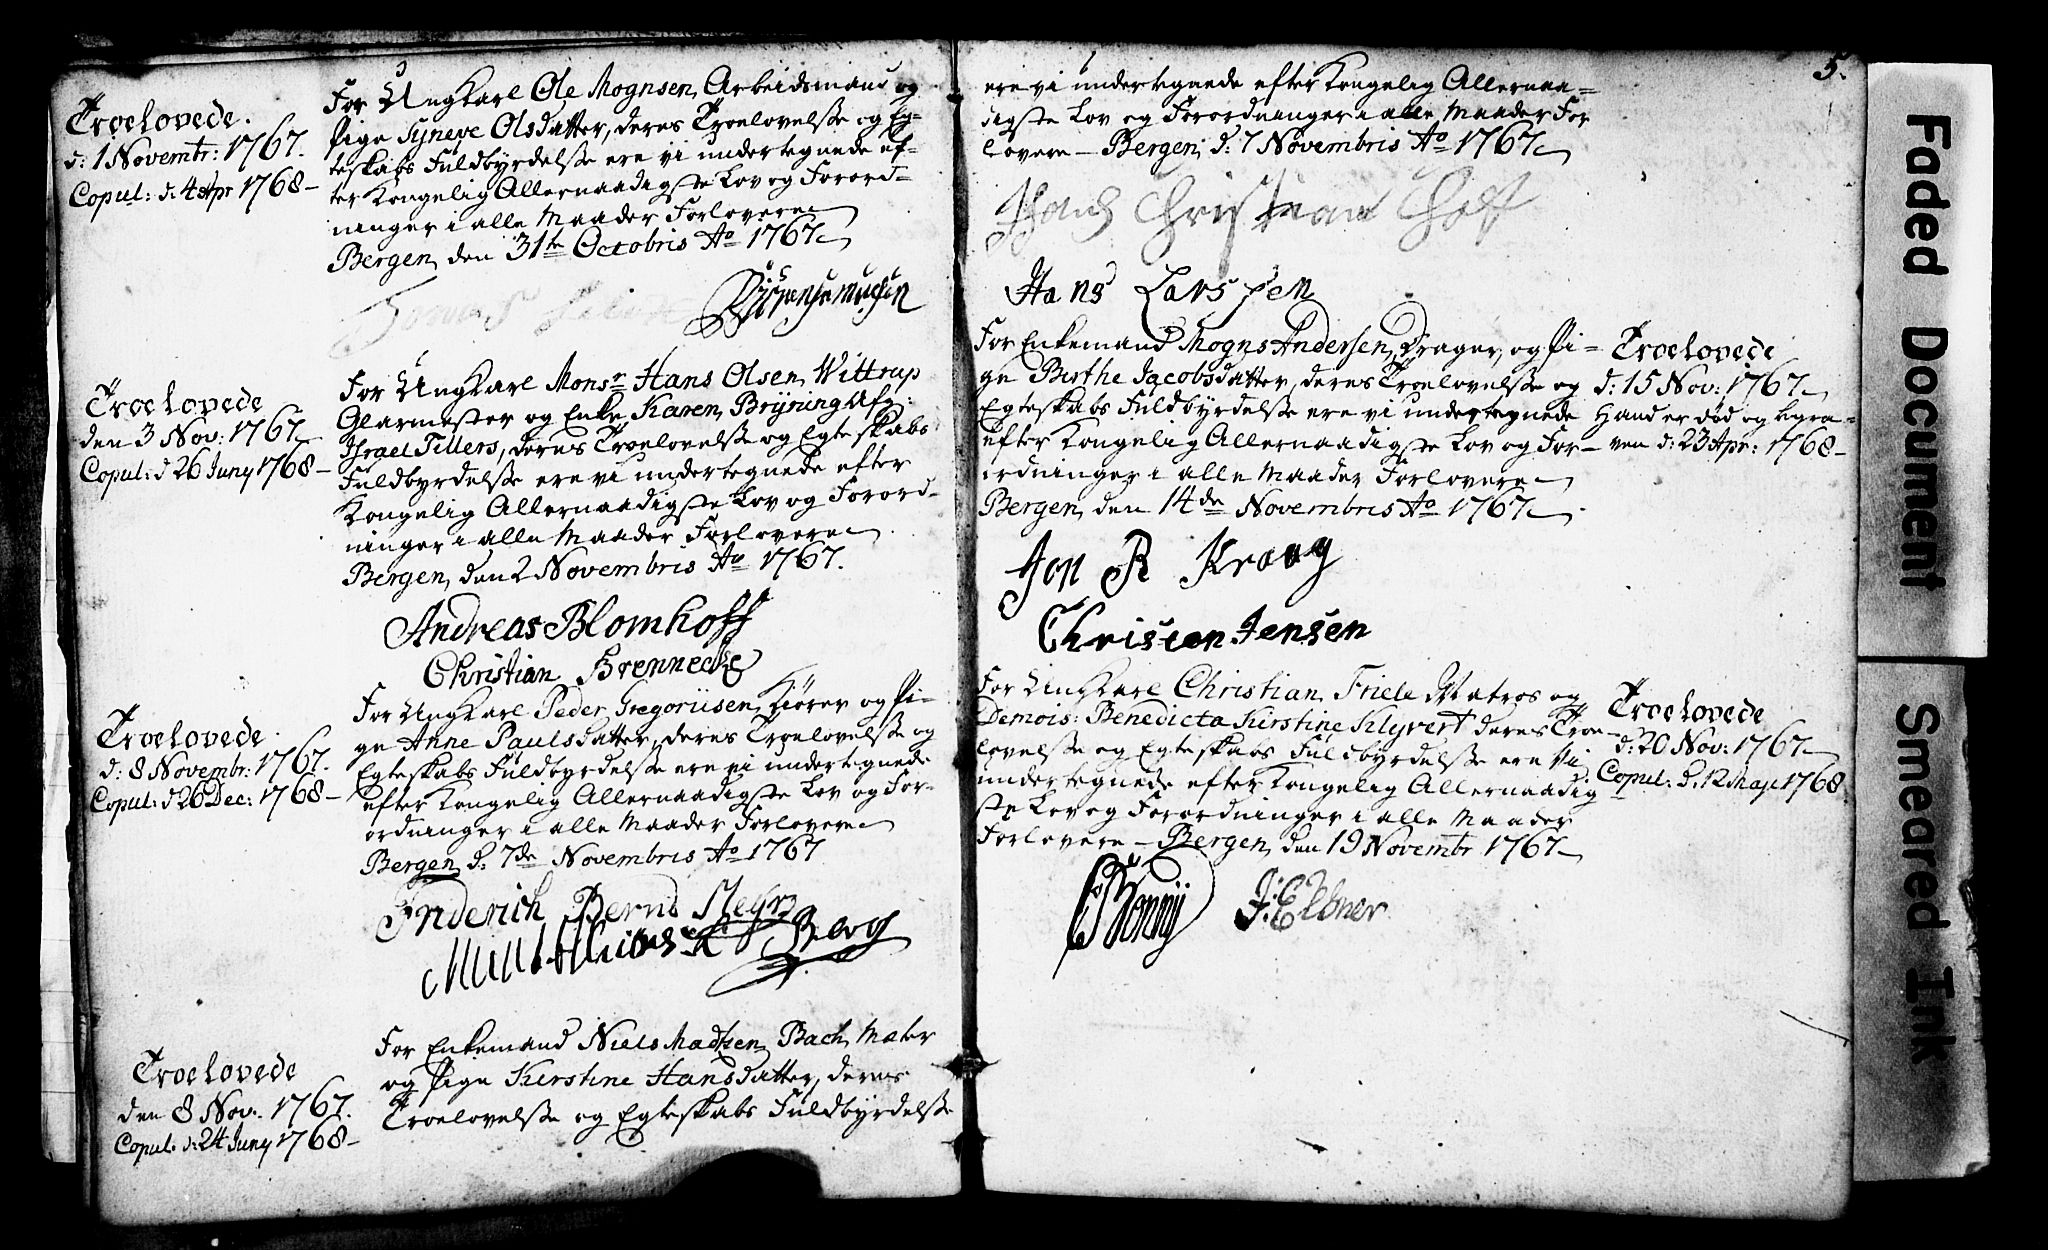 Troelovede.
d: 1 Novembr: 1767.
Copul: d: 4 Apr 1768 –
For Ungkarl Ole Mognsen, Arbeidsmand og
Pige Syneve Olsdatter, deres Troelovelsse og Eg-
teskabs Fuldbyrdelsse ere vi undertegnede ef-
ter Kongelig Allernaadigste Lov og Forord-
ninger i alle Maader Forlovere
Bergen, den 31te Octobris Ao 1767
Troelovede
den 3 Nov: 1767
Copul: d 26 Juny 1768 –
For Ungkarl Monsr Hans Olsen Wittrup
Glarmester og Enke Karen Bryning Afg:
Israel Tillers, deres Troelovelsse og Egteskabs
Fuldbyrdelsse ere vi undertegnede efter
Kongelig Allernaadigste Lov og Forord-
ninger i alle Maader Forlovere
Bergen, den 2 Novembris Ao 1767.
Andreas Blomhoff
Christian Brennecke
Troelovede
d: 8 Novembr: 1767.
Copul: d 26 Dec: 1768 –
For Ungkarl Peder Gregoriisen, Kiører og Pi-
ge Anne Paulsdatter, deres Troelovelsse og
Egteskabs Fuldbyrdelsse ere vi undertegnede
efter Kongelig Allernaadigste Lov og For-
ordninger i alle Maader Forlovere
Bergen d: 7de Novembris Ao 1767
Friderich Bernt
Berg
Troelovede
den 8 Nov: 1767.
Copul: d: 24 Juny 1768 –
For Enkemand Niels Madsen Bach, Maler
og Pige Kirstine Hansdatter, deres
Troelovelsse og Egteskabs Fuldbyrdelsse
5.
ere vi undertegnede efter Kongelig Allernaa-
digste Lov og Forordninger i alle Maader For
lovere – Bergen, d: 7 Novembris Ao 1767
Christian
Hans Larssen
For Enkemand Mogns Andersen, Drager, og Pi-
ge Birthe Jacobsdatter, deres Troelovelsse og
Egteskabs Fuldbyrdelsse ere vi undertegnede
efter Kongelig Allernaadigste Lov og For-
ordninger i alle Maader Forlovere
Bergen, den 14de Novembris Ao 1767
Troelovede
d: 15 Nov: 1767
Hand er død og begra-
ven d: 23 Apr: 1768 –
Jon R Kraag
Christen Jensen
For Ungkarl Christian Friele Matros og
Demois: Benedicta Kirstine Klyvert deres Troe-
lovelsse og Egteskabs Fuldbyrdelsse ere Vi
undertegnede efter Kongelig Allernaadig
ste Lov og Forordninger i alle Maader
Forlovere – Bergen, den 19 Novembr 1767
Troelovede
d: 20 Nov: 1767
Copul: d. 12 Maji 1768
Faded Document
Smeared Ink